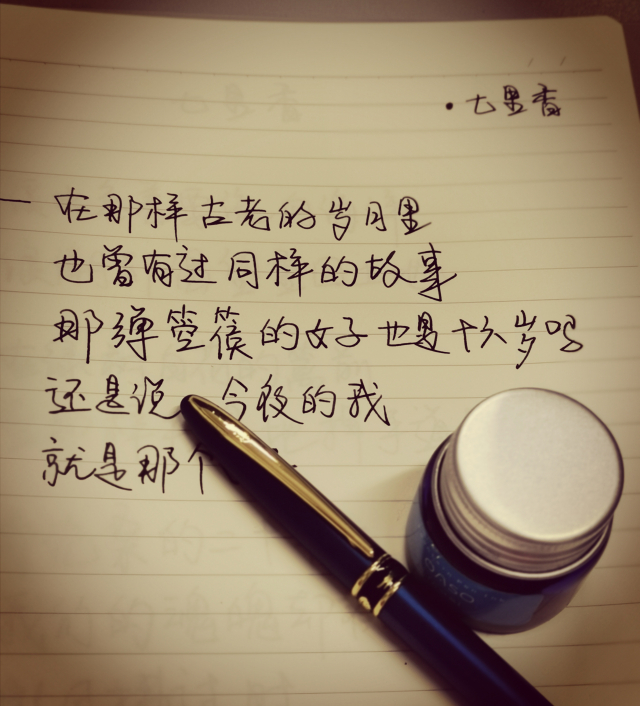 ·七里香
一 在那样古老的岁月里
也曾有过同样的故事
那弹箜篌的女子也是十六岁吗
还是说 今夜的我
就是那个